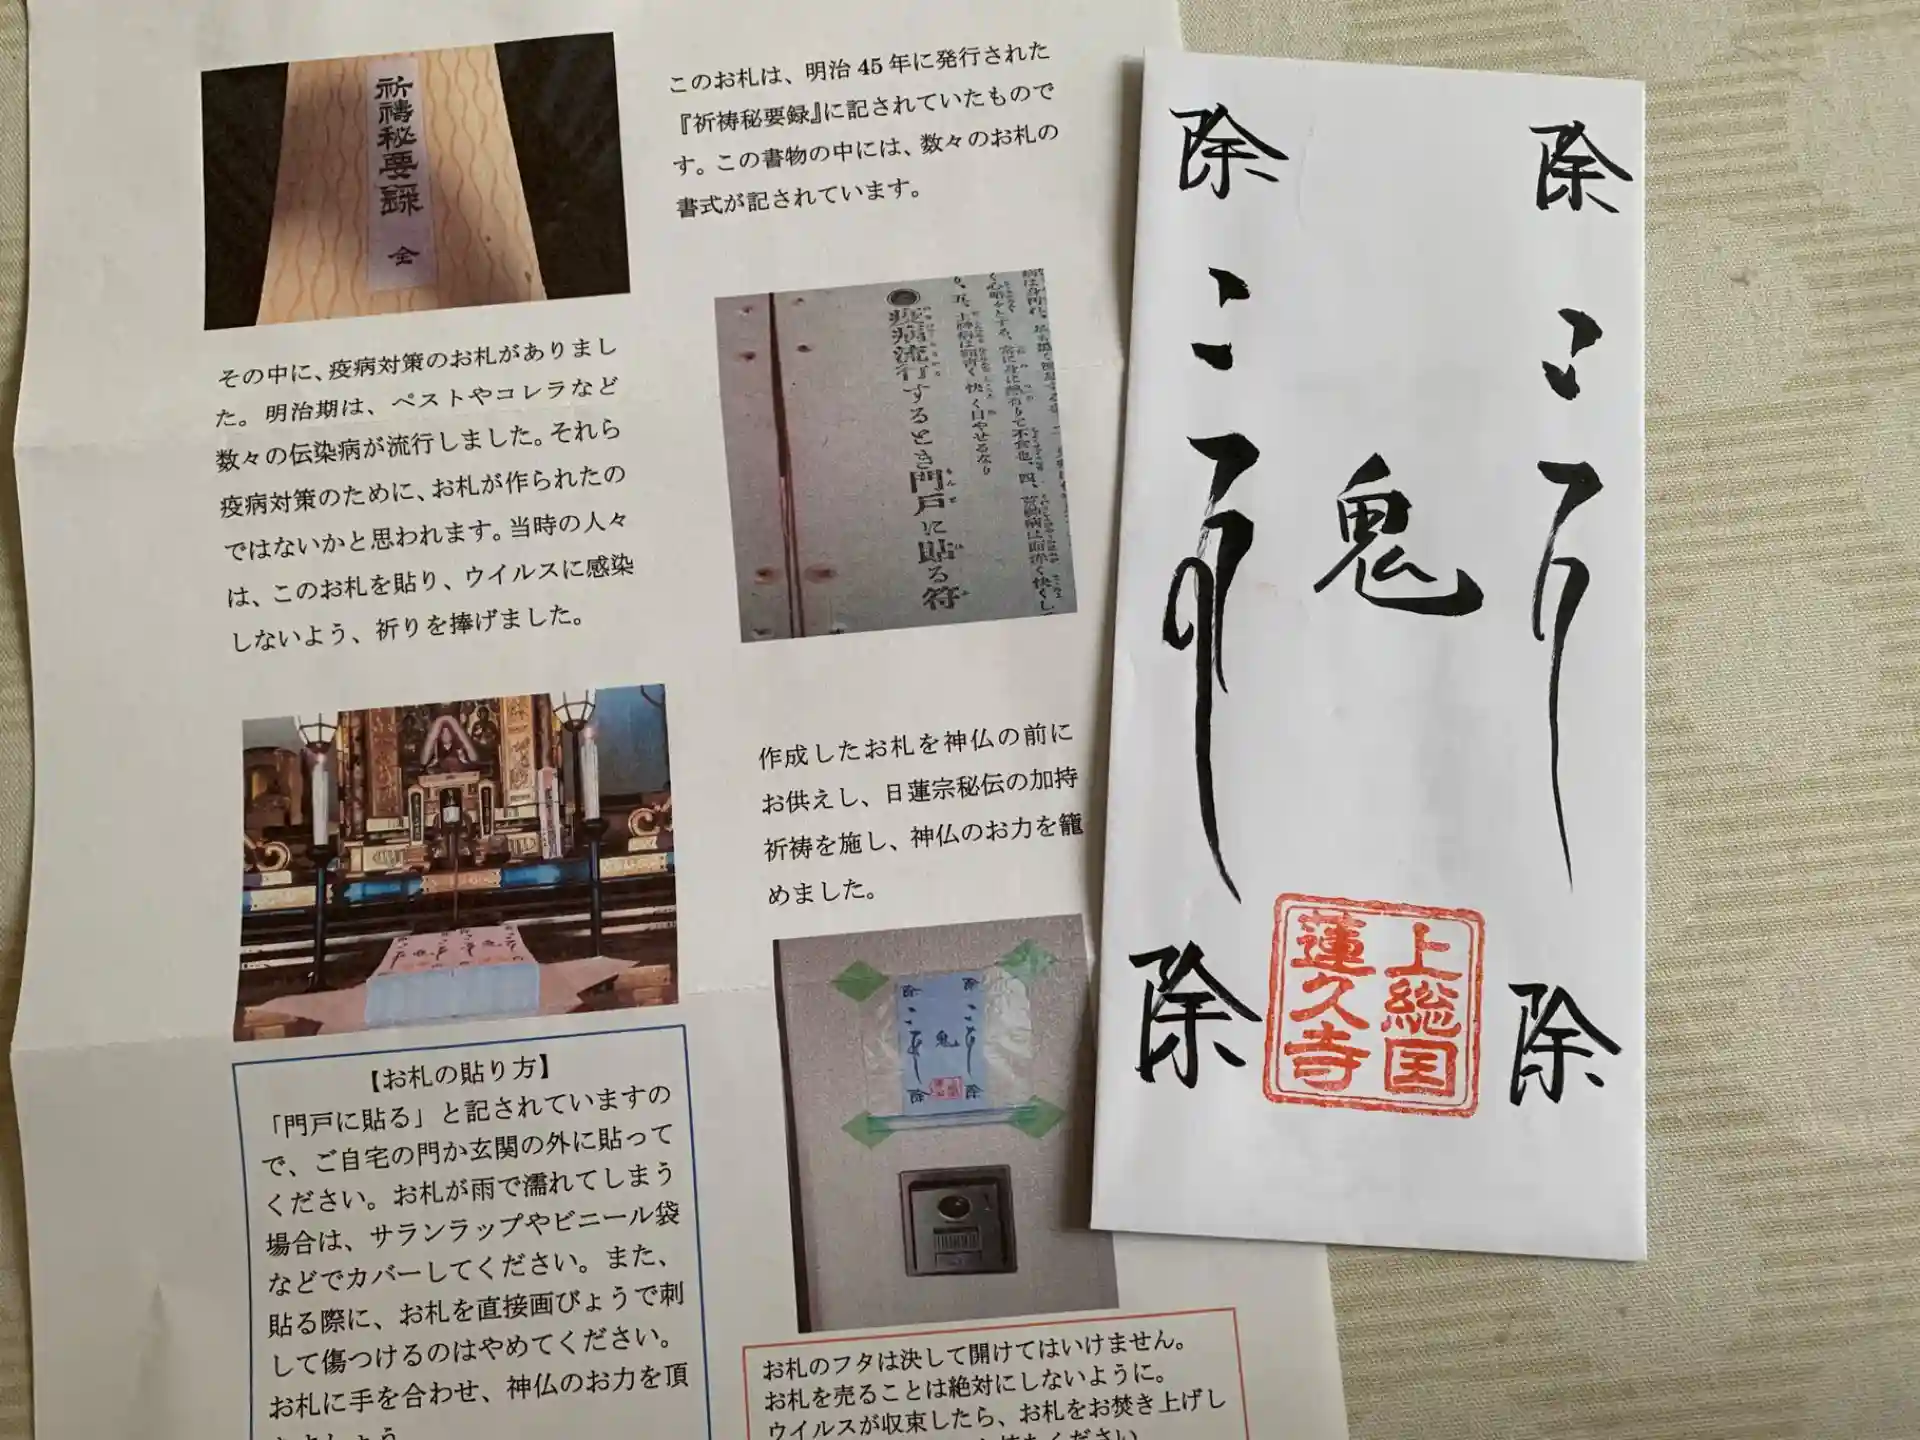 祈禱秘要録 全
このお札は、明治45年に発行された
『祈祷秘要録』に記されていたもので
す。この書物の中には、数々のお札の
書式が記されています。
その中に、疫病対策のお札がありまし
た。明治期は、ペストやコレラなど
数々の伝染病が流行しました。それら
疫病対策のために、お札が作られたの
ではないかと思われます。当時の人々
は、このお札を貼り、ウイルスに感染
しないよう、祈りを捧げました。
疫病流行するとき門戸に貼る符
作成したお札を神仏の前に
お供えし、日蓮宗秘伝の加持
祈祷を施し、神仏のお力を籠
めました。
【お札の貼り方】
「門戸に貼る」と記されていますの
で、ご自宅の門か玄関の外に貼って
ください。お札が雨で濡れてしまう
場合は、サランラップやビニール袋
などでカバーしてください。また、
貼る際に、お札を直接画びょうで刺
して傷つけるのはやめてください。
お札に手を合わせ、神仏のお力を頂
お札のフタは決して開けてはいけません。
お札を売ることは絶対にしないように。
ウイルスが収束したら、お札をお焚き上げし
除
除
鬼
除
除
上総国
蓮久寺